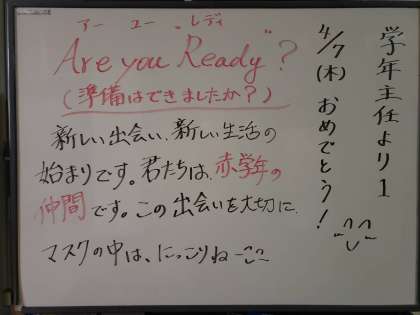 学年主任より1
4/7(木)おめでとう!
アー ユー レディ
"Are you Ready"?
(準備はできましたか?)
新しい出会い、新しい生活の
始まりです。君たちは、赤学年の
仲間です。この出会いを大切に、
マスクの中は、にっこりね